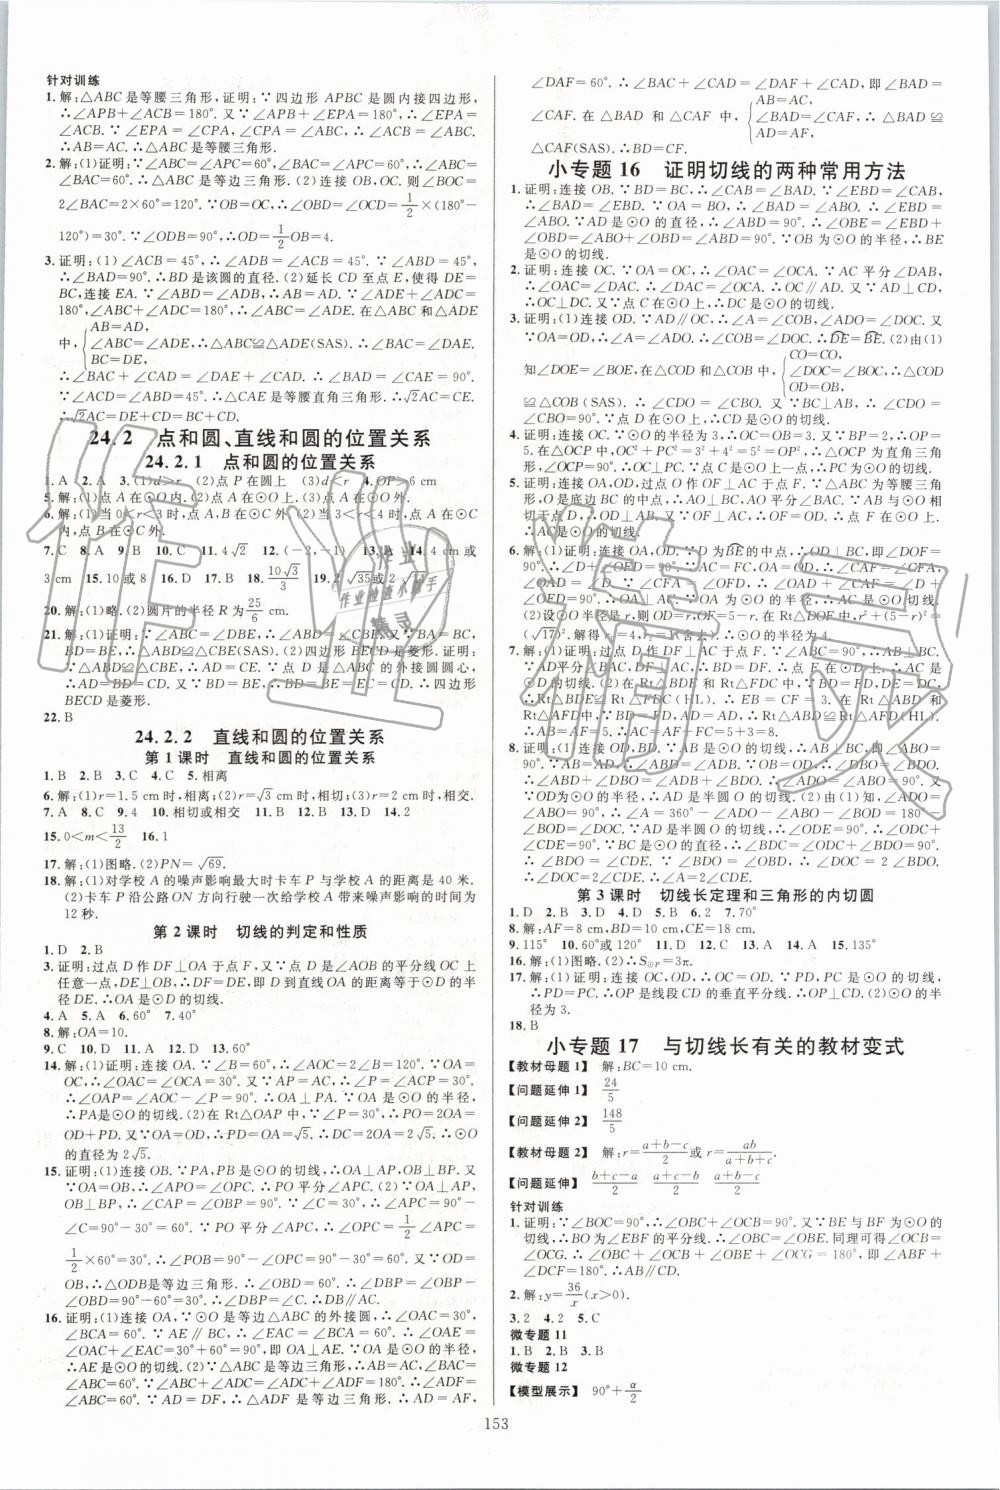 针对训练
1.解:△ABC是等腰三角形,证明:∵四边形APBC是圆内接四边形,
∴∠APB+∠ACB=180°.又∵∠APB+∠EPA=180°,∴∠EPA=
∠ACB.∵∠EPA=∠CPA,∠CPA=∠ABC,∴∠ACB=∠ABC.
∴AB=AC.∴△ABC是等腰三角形.
2.解:(1)证明:∵∠ABC=∠APC=60°,∠BAC=∠CPB=60°,
∴∠ACB=60°,∴△ABC是等边三角形.(2)连接OB,OC.则∠BOC=
2∠BAC=2×60°=120°.∵OB=OC,∴∠OBD=∠OCD=1/2×(180°-
120°)=30°.∵∠ODB=90°,∴OD=1/2OB=4.
3.证明:(1)∠ACB=45°,∴∠ADB=45°.∵∠ABD=45°,
∴∠BAD=90°.∴BD是该圆的直径.(2)延长CD至点E,使得DE=
BC,连接EA.∵∠ABD=∠ADB,∴AB=AD.∵∠ADE+∠ADC=
180°,∠ABC+∠ADC=180°,∴∠ABC=∠ADE.在△ABC和△ADE
中,{AB=AD, ∠ABC=∠ADE, BC=DE, ∴△ABC≌△ADE(SAS).∴∠BAC=∠DAE.
∴∠BAC+∠CAD=∠DAE+∠CAD.∴∠BAD=∠CAE=90°.
∵∠ACD=∠ABD=45°.∴△CAE是等腰直角三角形.∴√2AC=CE.
∴√2AC=DE+CD=BC+CD.
24.2 点和圆、直线和圆的位置关系
24.2.1 点和圆的位置关系
1.A 2.A 3.(1)d>r (2)点P在圆上 (3)d<r 4.OP>6 cm
5.解:(1)点A在⊙O内.(2)点A在⊙O上.(3)点A在⊙O外.
6.解:(1)当0<r<3时,点A,B在⊙C外.(2)当3<r<4时,点A在⊙C内,点B在⊙C外.
7.C 8.A 9.B 10.C 11.4√2 12.(-2,-1) 13.A 14.4 cm或
3 cm 15.10或8 16.D 17.B 18.10√3/3 19.2√35或2
20.解:(1)略.(2)圆片的半径R为25/6 cm.
21.解:(1)证明:∵∠ABC=∠DBE,∴∠ABD=∠CBE.又∵BA=BC,
BD=BE,∴△ABD≌△CBE(SAS).(2)四边形BECD是菱形.证明:
∵△ABD≌△CBE,∴AD=CE.∵点D是△ABC的外接圆圆心,
∴AD=BD=CD.又∵BD=BE,∴BD=BE=EC=CD.∴四边形
BECD是菱形.
22.B
24.2.2 直线和圆的位置关系
第1课时 直线和圆的位置关系
1.B 2.B 3.C 4.C 5.相离
6.解:(1)r=1.5 cm时,相离;(2)r=√3 cm时,相切;(3)r=2 cm时,相交.
7.A 8.C 9.4 10.相切或相交 11.B 12.D 13.D 14.2
15.0<m<13/2 16.1
17.解:(1)图略.(2)PN=√69.
18.解:(1)对学校A的噪声影响最大时卡车P与学校A的距离是40米.
(2)卡车P沿公路ON方向行驶一次给学校A带来噪声影响的时间为
12秒.
第2课时 切线的判定和性质
1.D 2.B
3.证明:过点D作DF⊥OA于点F,又∵点D是∠AOB的平分线OC上
任意一点,DE⊥OB,∴DF=DE.即D到直线OA的距离等于⊙D的半
径DE.∴OA是⊙D的切线.
4.A 5.A 6.60° 7.40°
8.解:OA=10.
9.C 10.D 11.A 12.D 13.60°
14.证明:(1)连接OA.∵∠ABC=60°,∴∠AOC=2∠B=120°.∵OA=
OC,∴∠ACP=∠CAO=30°.∴∠AOP=60°.∵AP=AC,∴∠P=∠ACP=30°.
∴∠OAP=∠AOC-∠P=90°.∴OA⊥PA.又∵OA是⊙O的半径,
∴PA是⊙O的切线.(2)在Rt△OAP中,∵∠P=30°,∴PO=2OA=
OD+PD.又∵OA=OD,∴PD=OA.∵PD=√5,∴DC=2OA=2√5.∴⊙O
的直径为2√5.
15.证明:(1)连接OB.∵PA,PB是⊙O的切线,∴OA⊥AP,OB⊥BP.又
∵OA=OB,∴∠APO=∠CPO.(2)∵OA⊥AP,
OB⊥BP,∴∠CAP=∠OBP=90°.∵∠C=30°,∴∠APC=90°-
∠C=90°-30°=60°.∵PO平分∠APC,∴∠OPC=1/2∠APC=
1/2×60°=30°.∴∠POB=90°-∠OPC=90°-30°=60°.又∵OD=
OB,∴△ODB是等边三角形.∴∠OBD=60°.∴∠DBP=∠OBP-
∠OBD=90°-60°=30°.∴∠DBP=∠C.∴DB∥AC.
16.证明:(1)连接OA,∵⊙O是等边△ABC的外接圆,∴∠OAC=30°,
∠BCA=60°.∵AE∥BC,∴∠EAC=∠BCA=60°.∴∠OAE=
∠OAC+∠EAC=30°+60°=90°,即OA⊥AE.∵OA是⊙O的半径,
∴AE是⊙O的切线.(2)∵△ABC是等边三角形,∴AB=AC,∠BAC=
∠ABC=60°.∵∠ABC+∠ADC=∠ADC+∠ADF=180°,∴∠ADF=
∠ABC=60°.∵AD=DF,∴△ADF是等边三角形.∴AD=AF,
∠DAF=60°.∴∠BAC+∠CAD=∠DAF+∠CAD,即∠BAD=
∠CAF.在△BAD和△CAF中,{AB=AC, ∠BAD=∠CAF, AD=AF, ∴△BAD≌
△CAF(SAS).∴BD=CF.
小专题16 证明切线的两种常用方法
1.证明:连接OB.∵BD=BC,∴∠CAB=∠BAD.∵∠EBD=∠CAB,
∴∠BAD=∠EBD.∵OA=BO,∴∠BAD=∠ABO.∴∠EBD=
∠ABO.∵AD是⊙O的直径,∴∠ABD=90°.∴∠OBE=∠EBD+
∠OBD=∠ABO+∠OBD=∠ABD=90°.∵OB为⊙O的半径,∴BE
是⊙O的切线.
2.证明:连接OC.∵OA=OC,∴∠OAC=∠OCA.∵AC平分∠DAB,
∴∠DAC=∠OAC.∴∠DAC=∠OCA.∴OC∥AD.∵AD⊥CD,
∴OC⊥CD.又∵OC是⊙O的半径,∴DC是⊙O的切线.
3.证明:(1)连接OD.∵AD∥OC,∴∠A=∠COB,∠ADO=∠DOC.又
∵OA=OD,∴∠A=∠ADO.∴∠COB=∠DOC.∴DE=BE.(2)由(1)
知∠DOE=∠BOE,在△COD和△COB中,{CO=CO, ∠DOC=∠BOC, OD=OB, ∴△COD
≌△COB(SAS).∴∠CDO=∠B.又∵BC⊥AB,∴∠CDO=
∠CBO=90°.∵点D在⊙O上,∴CD是⊙O的切线.
4.证明:连接OC.∵⊙O的半径为3,∴OC=OB=3.又∵BP=2,∴OP=
5.在△OCP中,OC²+PC²=3²+4²=5²=OP²,∴△OCP为直角三角
形,∠OCP=90°.∴OC⊥PC.∵C是⊙O上一点,∴PC为⊙O的切线.
5.证明:连接OD,OA,过点O作OF⊥AC于点F.∵△ABC为等腰三角形,
O是底边BC的中点,∴AO⊥BC,AO平分∠BAC.又∵AB与⊙O相
切于点D,∴OD⊥AB.又∵OF⊥AC,∴OF=OD.∴OF是⊙O的半
径.∴AC是⊙O的切线.
6.解:(1)证明:连接OA,OD.∵D为BE的中点,∴OD⊥BC,∠DOF=
90°.∴∠D+∠OFD=90°.∵AC=FC,OA=OD,∴∠CAF=∠CFA,
∠OAD=∠D.∵∠CFA=∠OFD,∴∠OAD+∠CAF=∠D+∠CFA
=90°.∴OA⊥AC.∵OA为⊙O的半径,∴AC是⊙O的切线.
(2)设⊙O半径是r,则OD=r,OF=5-r.在Rt△DOF中,r²+(5-r)²=
(√17)².解得r₁=4,r₂=1(舍去).∴⊙O的半径为4.
7.解:(1)证明:过点D作DF⊥AC于点F.∵∠ABC=90°,∴AB⊥BC.
∵AD平分∠BAC,DF⊥AC,∴BD=DF.∴点F在⊙D上.∴AC是
⊙D的切线.(2)在Rt△BDE和Rt△FDC中,∵BD=FD,DE=DC,
∴Rt△BDE≌Rt△FDC(HL).∴EB=CF=3.在Rt△ABD和
Rt△AFD中,∵BD=FD,AD=AD,∴Rt△ABD≌Rt△AFD(HL).
∴AB=AF=5.∴AC=AF+FC=5+3=8.
8.证明:(1)连接OD,BD.∵AB是⊙O的切线,∴AB⊥BC,即∠ABC=90°.
∵AB=AD,∴∠ABD=∠ADB.∵OB=OD,∴∠DBO=∠BDO.
∴∠ABD+∠DBO=∠ADB+∠BDO.∴∠ADO=∠ABO=90°.又
∵OD为半圆O的半径,∴AD是半圆O的切线.(2)由(1)知∠ADO=∠ABO=
90°,∴∠A=360°-∠ADO-∠ABO-∠BOD=180°-
∠BOD=∠DOC.∵AD是半圆O的切线,∴∠ODE=90°.∴∠ODC+
∠CDE=90°.∵BC是⊙O的直径,∴∠ODC+∠BDO=90°.
∴∠BDO=∠CDE.∵∠BDO=∠OBD,∴∠DOC=2∠BDO.
∴∠DOC=2∠CDE.∴∠A=2∠CDE.
第3课时 切线长定理和三角形的内切圆
1.D 2.C 3.D 4.D 5.D 6.2 7.70°
8.解:AF=8 cm,BD=10 cm,CE=18 cm.
9.115° 10.60°或120° 11.B 12.D 13.D 14.A 15.135°
16.解:(1)图略.(2)S⊙P=3π.
17.解:(1)证明:连接OD,OC.∵OC=OD.∵PD,PC是⊙O的切线,
∴PD=PC.∴OP是线段CD的垂直平分线.(2)⊙O的半
径为3.
18.B
小专题17 与切线长有关的教材变式
【教材母题1】 解:BC=10 cm.
【问题延伸1】 24/5
【问题延伸2】 148/5
【教材母题2】 解:r=(a+b-c)/2或r=ab/(a+b+c).
【问题延伸】 (b+c-a)/2 (a+c-b)/2 (a+b-c)/2
针对训练
1.证明:∵∠BOC=90°,∴∠OBC+∠OCB=90°.又∵BE与BF为⊙O的
切线,∴BO为∠EBF的平分线.∴∠OBE=∠OBC.同理可得∠OCB=
∠OCG.∴∠OBC+∠OCB+∠OBE+∠OCG=180°,即∠ABF+
∠DCF=180°.∴AB∥CD.
2.解:y=36/x(x>0).
3.2 4.2 5.C
微专题11
1.B 2.B 3.B
微专题12
【模型展示】 90°+α/2
153
作业精灵
作业检查小助手